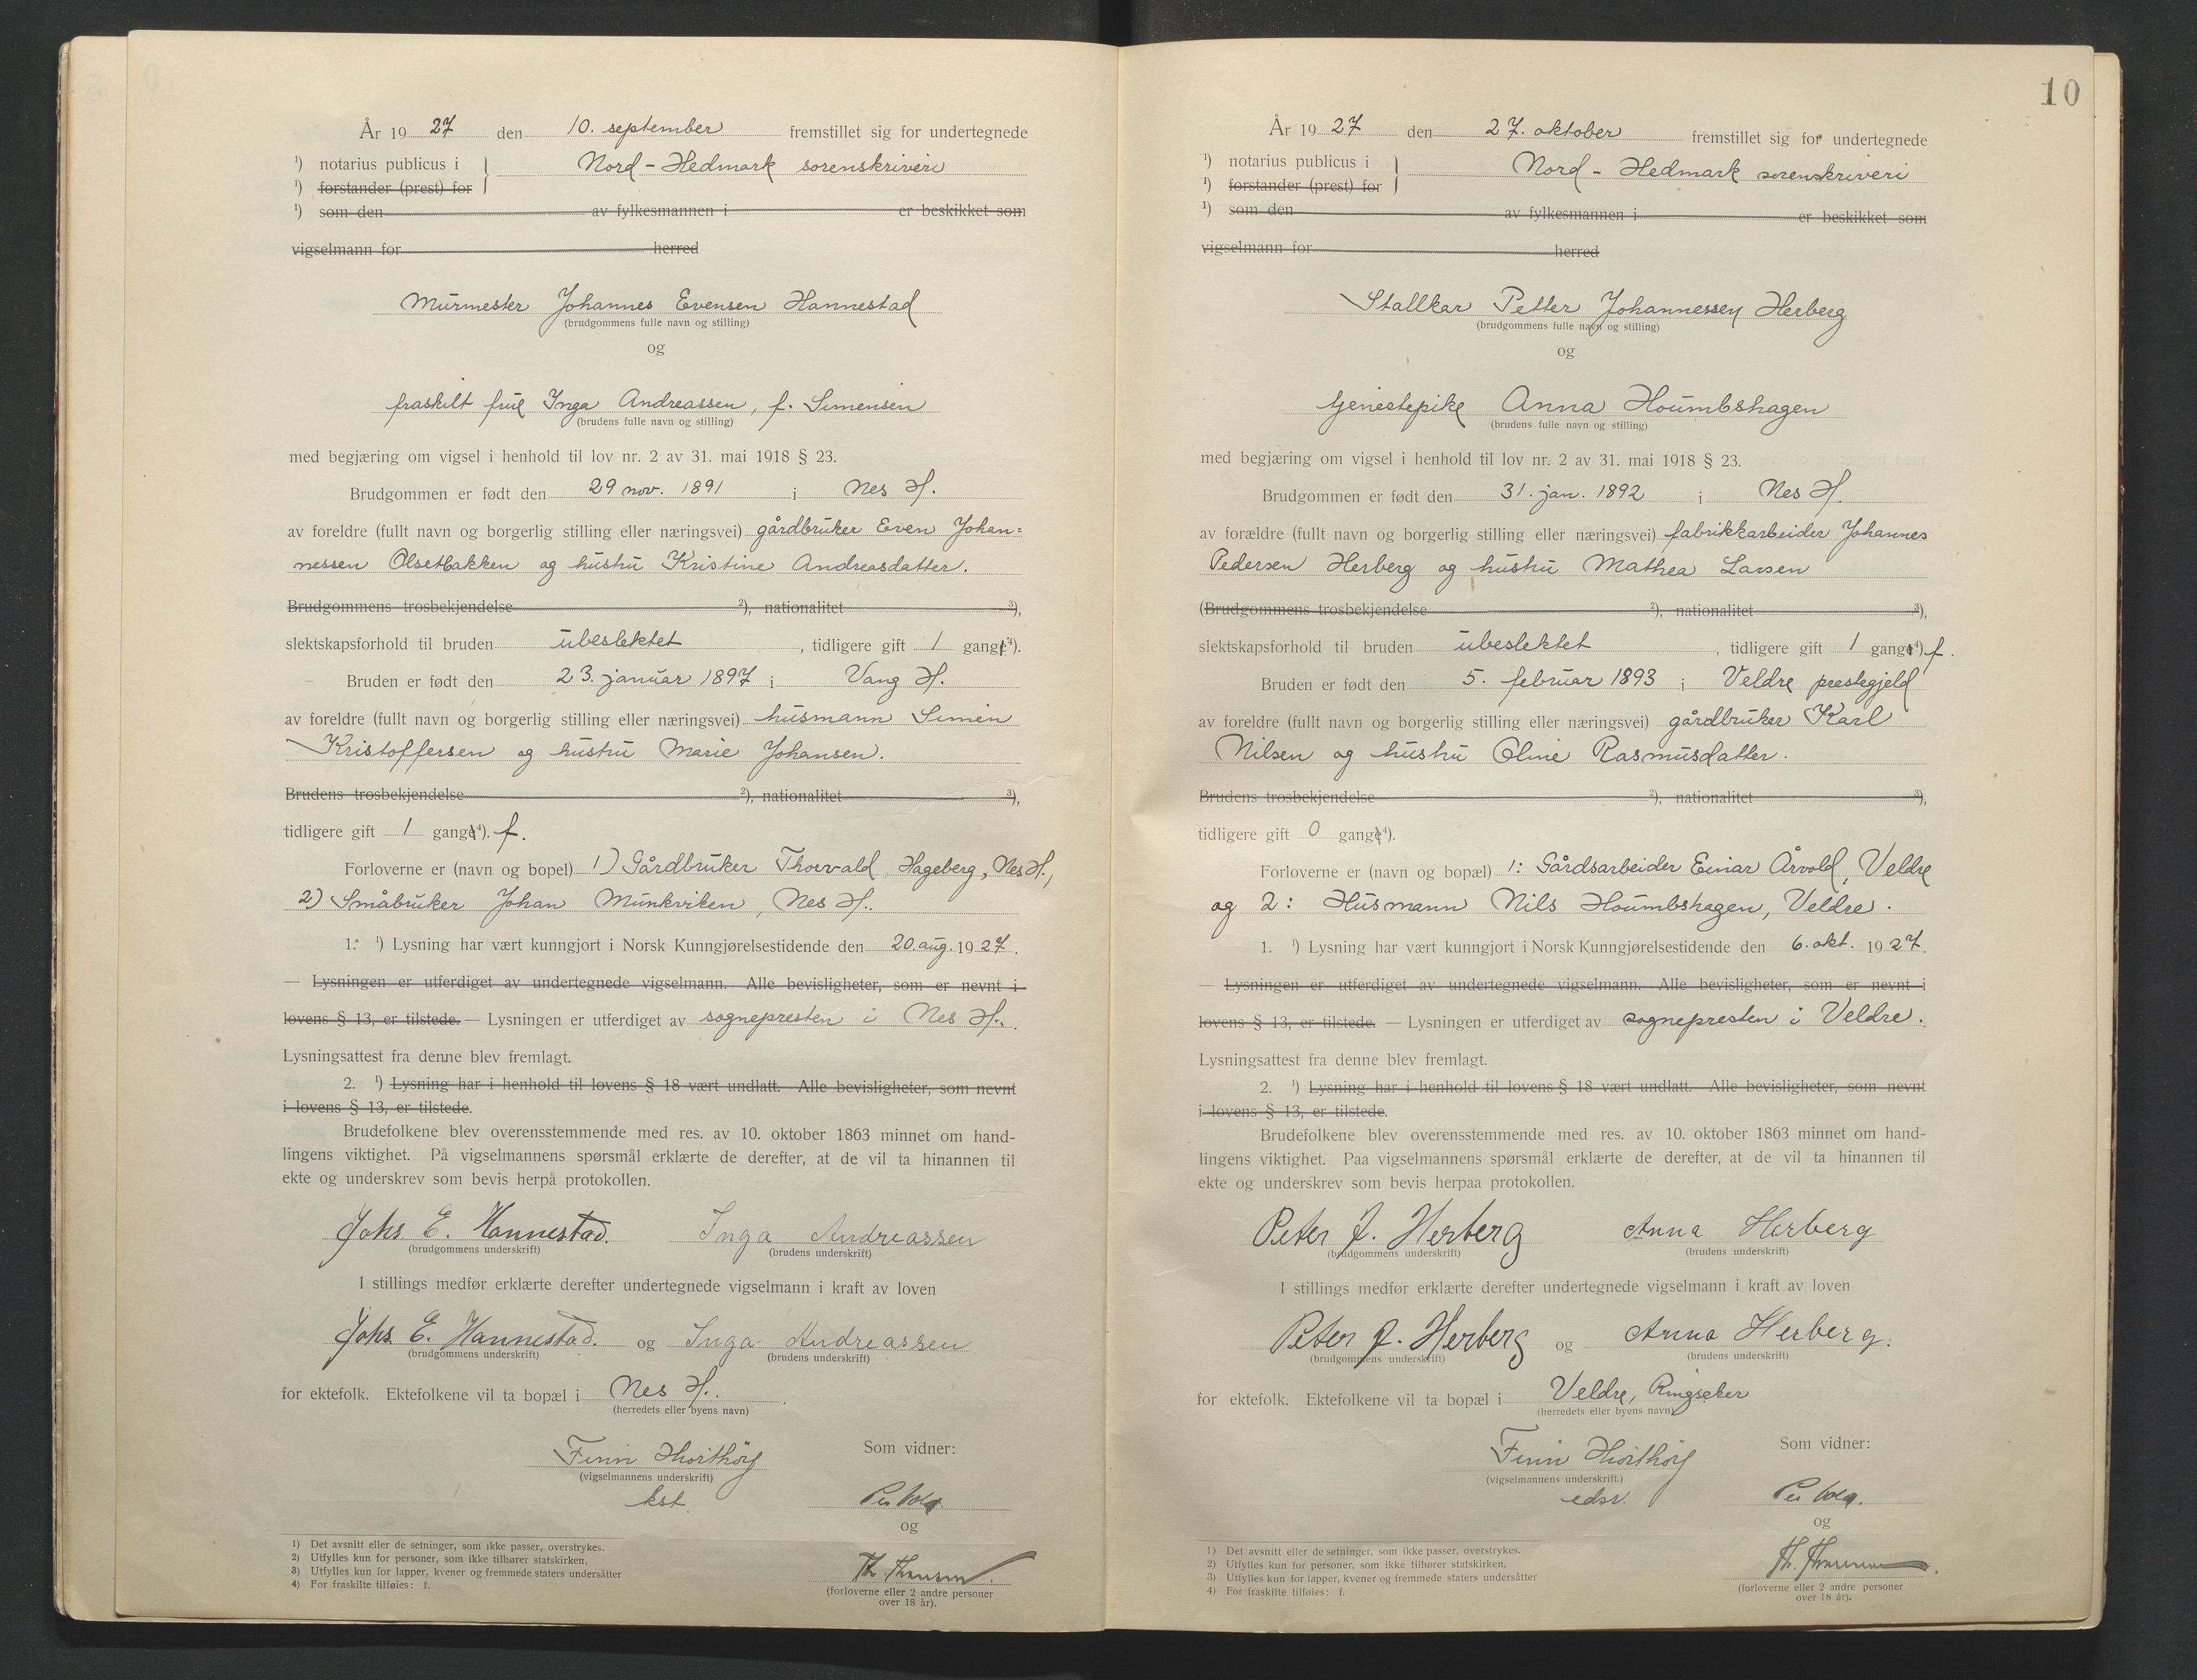 År 1927 den 10. september fremstillet sig for undertegnede
¹) notarius publicus i } Nord-Hedmark sorenskriveri
¹) forstander (prest) for
¹) som den av fylkesmannen i er beskikket som
vigselmann for herred
Murmester Johannes Evensen Hannestad
(brudgommens fulle navn og stilling)
og
fraskilt frue Inga Andreassen, f. Simensen
(brudens fulle navn og stilling)
med begjæring om vigsel i henhold til lov nr. 2 av 31. mai 1918 § 23.
Brudgommen er født den 29 nov. 1891 i Nes H.
av foreldre (fullt navn og borgerlig stilling eller næringsvei) gårdbruker Even Johan=
nessen Olsetbakken og hustru Kristine Andreasdatter.
Brudgommens trosbekjendelse ²), nationalitet ³),
slektskapsforhold til bruden ubeslektet, tidligere gift 1 gange⁴).
Bruden er født den 23. januar 1897 i Vang H.
av foreldre (fullt navn og borgerlig stilling eller næringsvei) husmann Simen
Kristoffersen og hustru Marie Johansen.
Brudens trosbekjendelse ²), nationalitet ³),
tidligere gift 1 gange⁴). f.
Forloverne er (navn og bopel) 1) Gårdbruker Thorvald Hageberg, Nes H.,
2) Småbruker Johan Munkviken, Nes H.
1. ¹) Lysning har vært kunngjort i Norsk Kunngjørelsestidende den 20. aug. 1927.
— Lysningen er utferdiget av undertegnede vigselmann. Alle bevisligheter, som er nevnt i
lovens § 13, er tilstede. — Lysningen er utferdiget av sognepresten i Nes H.
Lysningsattest fra denne blev fremlagt.
2. ¹) Lysning har i henhold til lovens § 18 vært undlatt. Alle bevisligheter, som nevnt
i lovens § 13, er tilstede.
Brudefolkene blev overensstemmende med res. av 10. oktober 1863 minnet om hand-
lingens viktighet. På vigselmannens spørsmål erklærte de derefter, at de vil ta hinannen til
ekte og underskrev som bevis herpå protokollen.
Johs E. Hannestad. Inga Andreassen
(brudgommens underskrift) (brudens underskrift)
I stillings medfør erklærte derefter undertegnede vigselmann i kraft av loven
Johs. E. Hannestad. og Inga Andreassen
(brudgommens underskrift) (brudens underskrift)
for ektefolk. Ektefolkene vil ta bopæl i Nes H.
(herredets eller byens navn)
Finn Hiorthöy Som vidner:
(vigselmannens underskrift)
kst.
og
(forloverne eller 2 andre personer
over 18 år).
1) Det avsnitt eller de setninger, som ikke passer, overstrykes.
2) Utfylles kun for personer, som ikke tilhører statskirken.
3) Utfylles kun for lapper, kvener og fremmede staters undersåtter
4) For fraskilte tilføies: f.
10
År 1927 den 27. oktober fremstillet sig for undertegnede
¹) notarius publicus i } Nord-Hedmark sorenskriveri
¹) forstander (prest) for
¹) som den av fylkesmannen i er beskikket som
vigselmann for herred
Stallkar Petter Johannessen Herberg
(brudgommens fulle navn og stilling)
og
tjenestepike Anna Houmbshagen
(brudens fulle navn og stilling)
med begjæring om vigsel i henhold til lov nr. 2 av 31. mai 1918 § 23.
Brudgommen er født den 31. jan. 1892 i Nes H.
av forældre (fullt navn og borgerlig stilling eller næringsvei) fabrikkarbeider Johannes
Pedersen Herberg og hustru Mathea Larsen
(Brudgommens trosbekjendelse ²), nationalitet ³),
slektskapsforhold til bruden ubeslektet, tidligere gift 1 gange⁴) f.
Bruden er født den 5. februar 1893 i Veldre prestegjeld
av foreldre (fullt navn og borgerlig stilling eller næringsvei) gårdbruker Karl
Nilsen og hustru Oline Rasmusdatter.
Brudens trosbekjendelse ²), nationalitet ³),
tidligere gift 0 gange⁴).
Forloverne er (navn og bopæl) 1: Gårdsarbeider Einar Årvold, Veldre
og 2: Husmann Nils Houmbshagen, Veldre.
1. ¹) Lysning har vært kunngjort i Norsk Kunngjørelsestidende den 6. okt. 1927.
— Lysningen er utferdiget av undertegnede vigselmann. Alle bevisligheter, som er nevnt i
lovens § 13, er tilstede. — Lysningen er utferdiget av sognepresten i Veldre.
Lysningsattest fra denne blev fremlagt.
2. ¹) Lysning har i henhold til lovens § 18 vært undlatt. Alle bevisligheter, som nevnt
i lovens § 13, er tilstede.
Brudefolkene blev overensstemmende med res. av 10. oktober 1863 minnet om hand-
lingens viktighet. Paa vigselmannens spørsmål erklærte de derefter, at de vil ta hinannen til
ekte og underskrev som bevis herpaa protokollen.
Peter J. Herberg Anna Herberg
(brudgommens underskrift) (brudens underskrift)
I stillings medfør erklærte derefter undertegnede vigselmann i kraft av loven
Peter J. Herberg og Anna Herberg.
(brudgommens underskrift) (brudens underskrift)
for ektefolk. Ektefolkene vil ta bopæl i Veldre, Ringsaker
(herredets eller byens navn)
Finn Hiorthöy Som vidner:
(vigselmannens underskrift.)
edsv.
og
(forloverne eller 2 andre personer
over 18 år).
1) Det avsnitt eller de setninger, som ikke passer, overstrykes.
2) Utfylles kun for personer, som ikke tilhører statskirken.
3) Utfylles kun for lapper, kvener og fremmede staters undersåtter
4) For fraskilte tilføies: f.